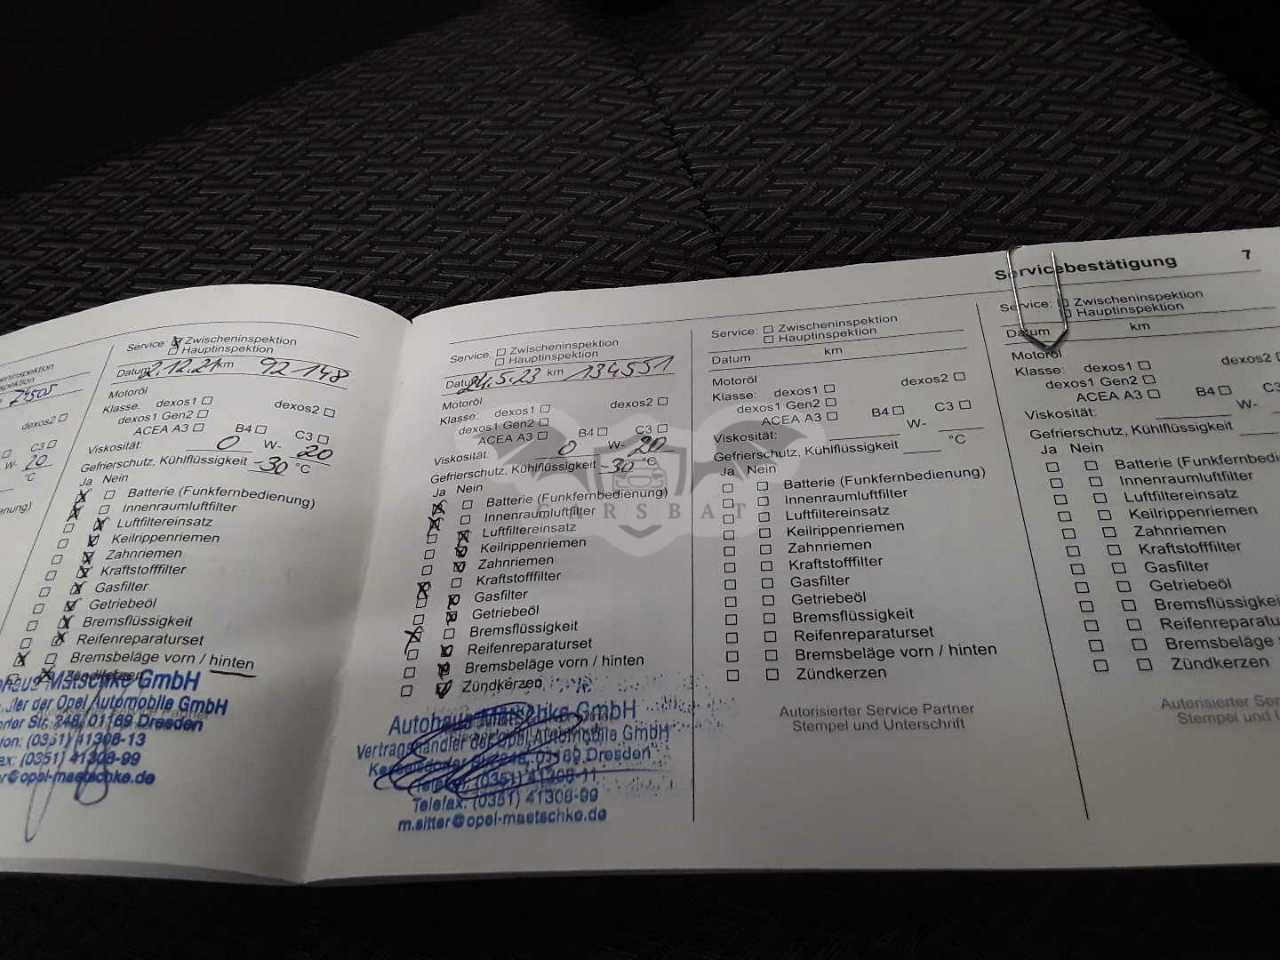 Servicebestätigung 7
nspektion
ektion
7500
dexos2 ☐
C3 ☐
W- 20
°C
nung)
Service ☒ Zwischeninspektion
☐ Hauptinspektion
Datum 2.12.21 km 92148
Motoröl
Klasse: dexos1 ☐ dexos2 ☐
dexos1 Gen2 ☐
ACEA A3 ☐ B4 ☐ C3 ☐
Viskosität: 0 W- 20
Gefrierschutz, Kühlflüssigkeit -30 °C
Ja Nein
☒ ☐ Batterie (Funkfernbedienung)
☒ ☐ Innenraumluftfilter
☐ ☒ Luftfiltereinsatz
☐ ☒ Keilrippenriemen
☐ ☒ Zahnriemen
☐ ☒ Kraftstofffilter
☐ ☒ Gasfilter
☐ ☒ Getriebeöl
☐ ☒ Bremsflüssigkeit
☐ ☒ Reifenreparaturset
☒ ☐ Bremsbeläge vorn / hinten
☐ ☒ Zündkerzen
Matschke GmbH
der Opel Automobile GmbH
Str. 248, 01169 Dresden
(0351) 41308-13
(0351) 41308-99
@opel-maetschke.de
Service: ☐ Zwischeninspektion
☐ Hauptinspektion
Datum 24.5.23 km 134551
Motoröl
Klasse: dexos1 ☐ dexos2 ☐
dexos1 Gen2 ☐
ACEA A3 ☐ B4 ☐ C3 ☐
Viskosität: 0 W- 20
Gefrierschutz, Kühlflüssigkeit -30 °C
Ja Nein
☒ ☐ Batterie (Funkfernbedienung)
☒ ☐ Innenraumluftfilter
☐ ☒ Luftfiltereinsatz
☐ ☒ Keilrippenriemen
☐ ☒ Zahnriemen
☒ ☐ Kraftstofffilter
☐ ☒ Gasfilter
☐ ☒ Getriebeöl
☒ ☐ Bremsflüssigkeit
☐ ☒ Reifenreparaturset
☐ ☒ Bremsbeläge vorn / hinten
☐ ☒ Zündkerzen
Autohaus Matschke GmbH
Vertragshändler der Opel Automobile GmbH
248, 01169 Dresden
Telefon: (0351) 41308-11
Telefax: (0351) 41308-99
m.sitter@opel-maetschke.de
CARSBAT
Service: ☐ Zwischeninspektion
☐ Hauptinspektion
Datum km
Motoröl
Klasse: dexos1 ☐ dexos2 ☐
dexos1 Gen2 ☐
ACEA A3 ☐ B4 ☐ C3 ☐
Viskosität: W-
Gefrierschutz, Kühlflüssigkeit °C
Ja Nein
☐ ☐ Batterie (Funkfernbedienung)
☐ ☐ Innenraumluftfilter
☐ ☐ Luftfiltereinsatz
☐ ☐ Keilrippenriemen
☐ ☐ Zahnriemen
☐ ☐ Kraftstofffilter
☐ ☐ Gasfilter
☐ ☐ Getriebeöl
☐ ☐ Bremsflüssigkeit
☐ ☐ Reifenreparaturset
☐ ☐ Bremsbeläge vorn / hinten
☐ ☐ Zündkerzen
Autorisierter Service Partner
Stempel und Unterschrift
Service: ☐ Zwischeninspektion
☐ Hauptinspektion
Datum km
Motoröl
Klasse: dexos1 ☐ dexos2 ☐
dexos1 Gen2 ☐
ACEA A3 ☐ B4 ☐ C3
Viskosität: W-
Gefrierschutz, Kühlflüssigkeit
Ja Nein
☐ ☐ Batterie (Funkfernbedienun
☐ ☐ Innenraumluftfilter
☐ ☐ Luftfiltereinsatz
☐ ☐ Keilrippenriemen
☐ ☐ Zahnriemen
☐ ☐ Kraftstofffilter
☐ ☐ Gasfilter
☐ ☐ Getriebeöl
☐ ☐ Bremsflüssigke
☐ ☐ Reifenreparatu
☐ ☐ Bremsbeläge
☐ ☐ Zündkerzen
Autorisierter Ser
Stempel und U